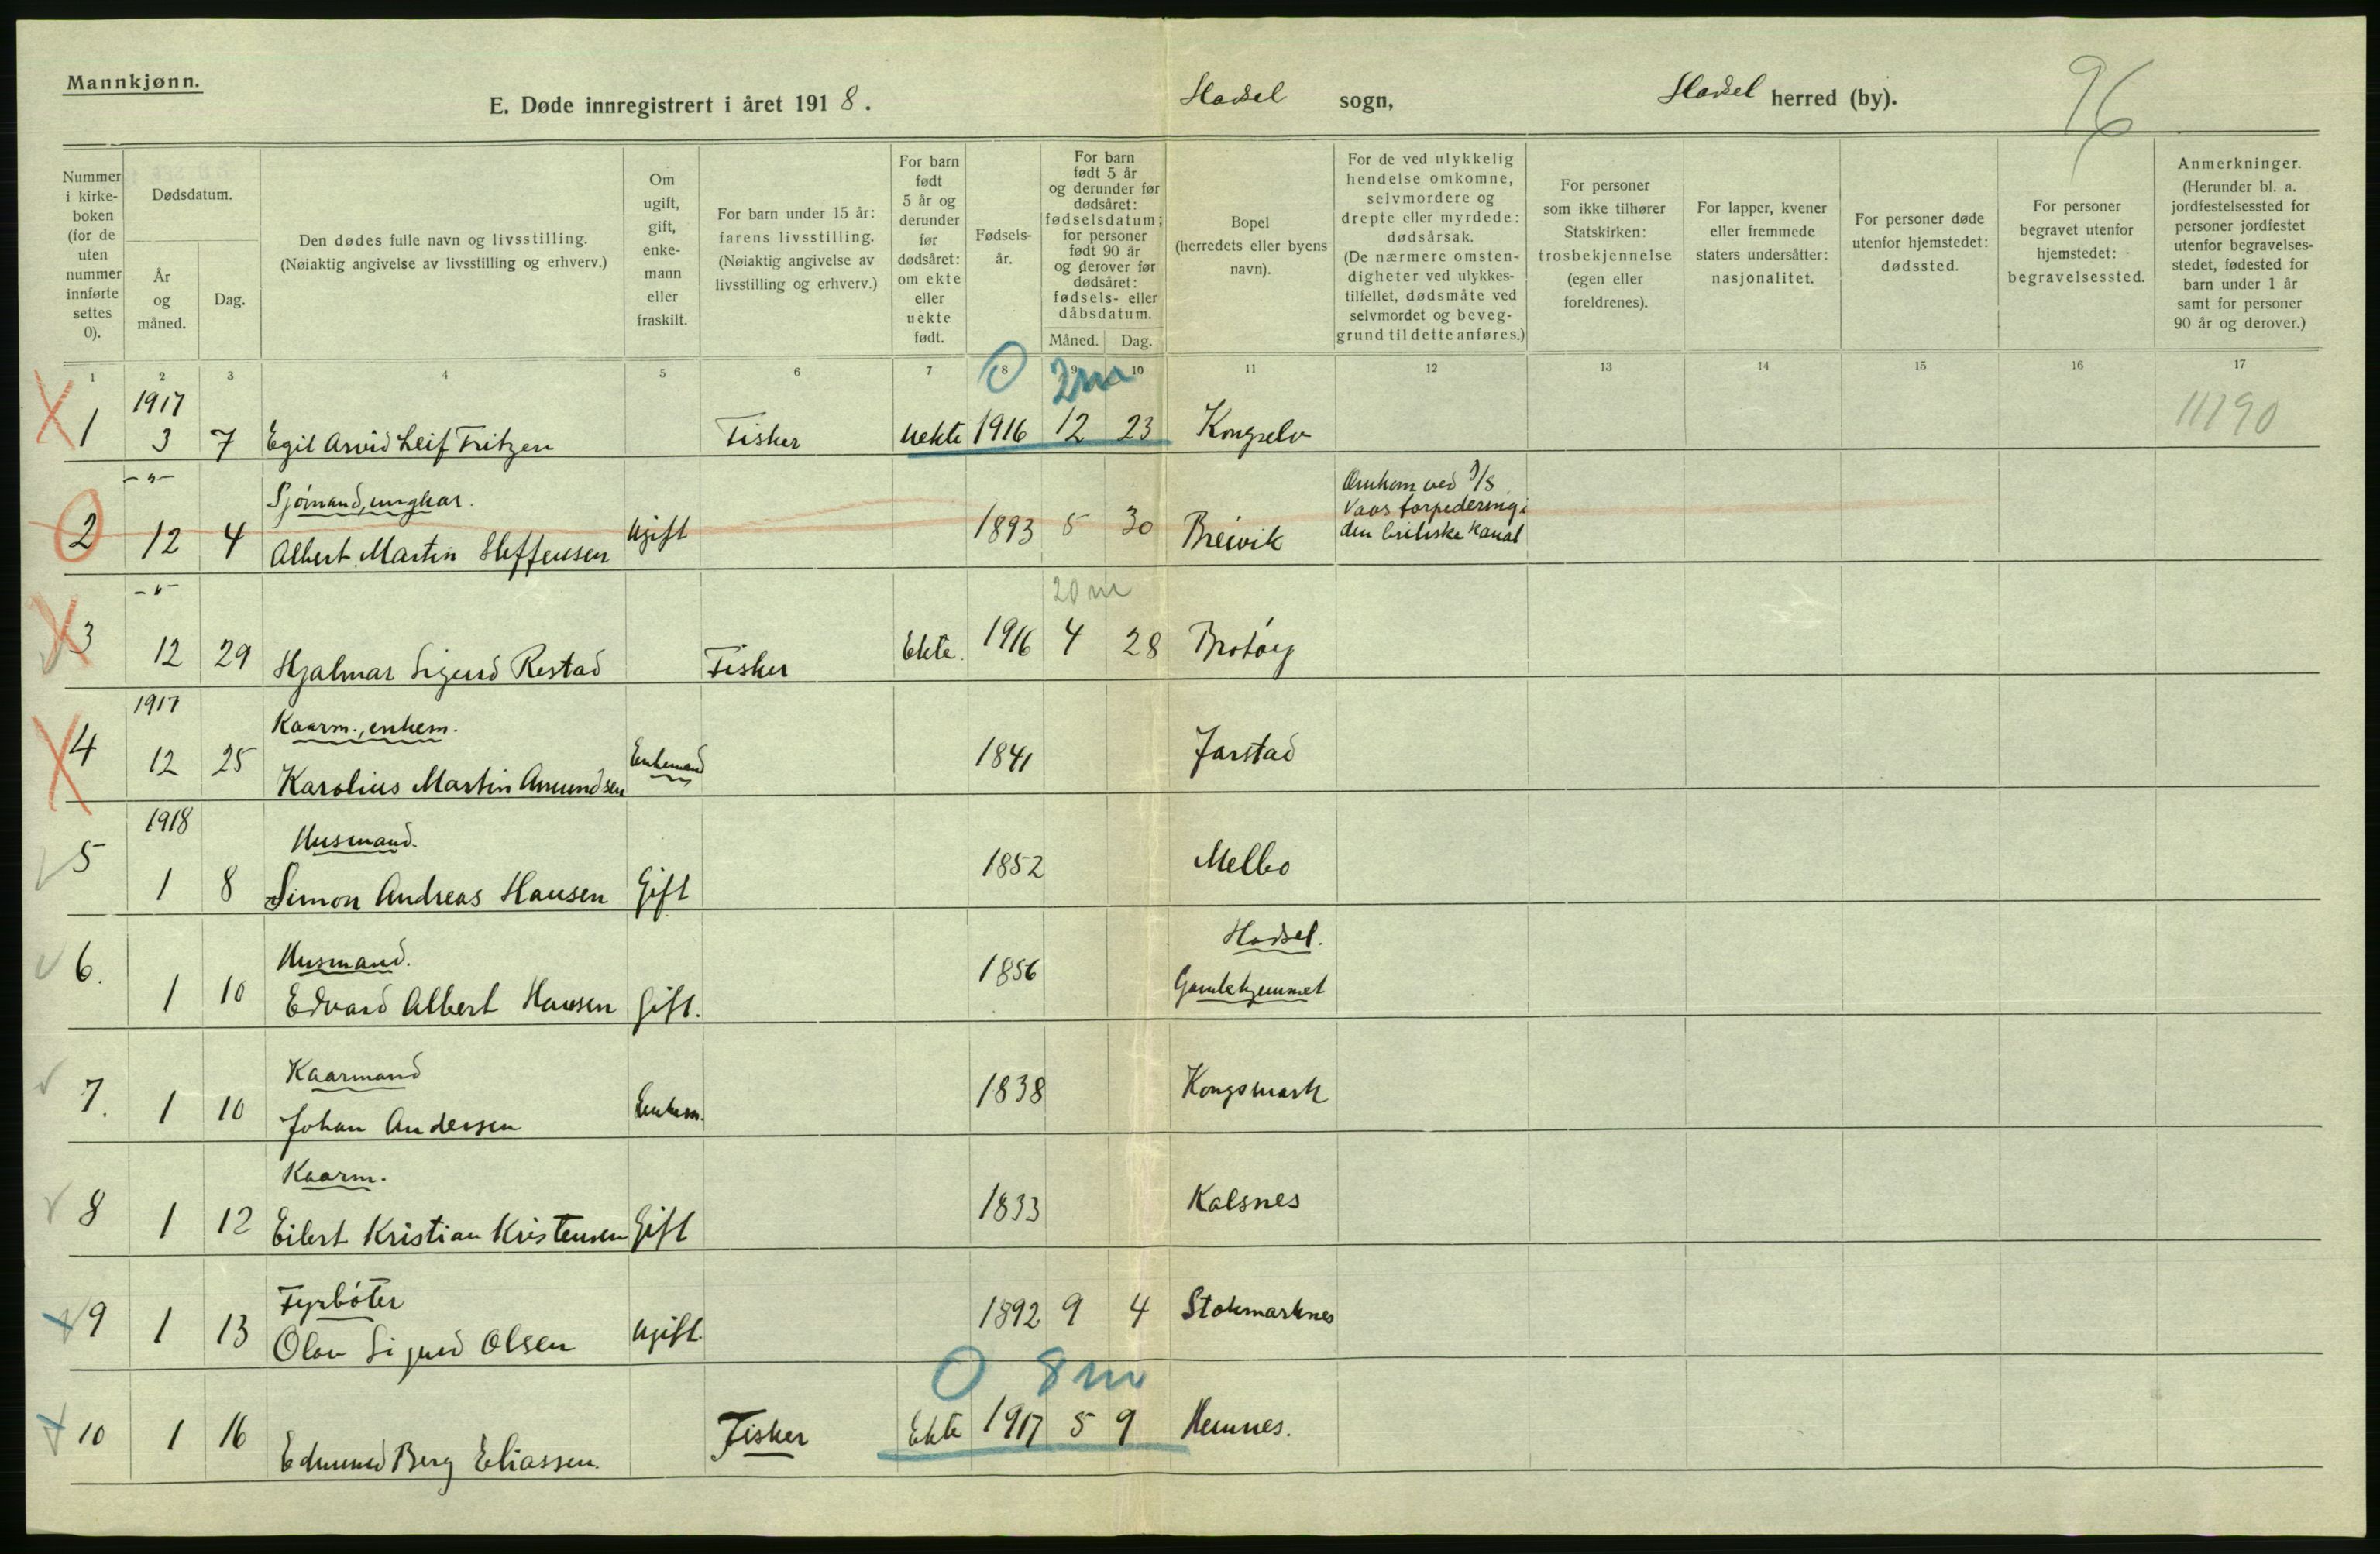 Mannkjønn.
E. Døde innregistrert i året 1918. Hadsel sogn, Hadsel herred (by). 96
Nummer i kirkeboken (for de uten nummer innførte settes 0).
Dødsdatum.
År og måned.
Dag.
Den dødes fulle navn og livsstilling.
(Nøiaktig angivelse av livsstilling og erhverv.)
Om ugift, gift, enkemann eller fraskilt.
For barn under 15 år: farens livsstilling.
(Nøiaktig angivelse av livsstilling og erhverv.)
For barn født 5 år og derunder før dødsåret: om ekte eller uekte født.
Fødselsår.
For barn født 5 år og derunder før dødsåret: fødselsdatum; for personer født 90 år og derover før dødsåret: fødsels- eller dåbsdatum.
Måned. Dag.
Bopel (herredets eller byens navn).
For de ved ulykkelig hendelse omkomne, selvmordere og drepte eller myrdede: dødsårsak.
(De nærmere omstendigheter ved ulykkestilfellet, dødsmåte ved selvmordet og beveggrund til dette anføres.)
For personer som ikke tilhører Statskirken: trosbekjennelse (egen eller foreldrenes).
For lapper, kvener eller fremmede staters undersåtter: nasjonalitet.
For personer døde utenfor hjemstedet: dødssted.
For personer begravet utenfor hjemstedet: begravelsessted.
Anmerkninger.
(Herunder bl. a. jordfestelsessted for personer jordfestet utenfor begravelsesstedet, fødested for barn under 1 år samt for personer 90 år og derover.)
1 2 3 4 5 6 7 8 9 10 11 12 13 14 15 16 17
1917 0 2m 11190
1 3 7 Egil Arvid Leif Fritzen Fisker Uekte 1916 12 23 Kongselv
-"- Sjømand, ungkar. Omkom ved D/S
Vaos torpedering i
2 12 4 Albert Martin Steffensen Ugift 1893 5 30 Breivik den britiske kanal
-"- 20 m
3 12 29 Hjalmar Sigurd Restad Fisker Ekte. 1916 4 28 Brotøy
1917 Kaarm., enkem.
4 12 25 Karolius Martin Amundsen Enkemand 1841 Jarstad
1918 Husmand.
5 1 8 Simon Andreas Hansen Gift 1852 Melbo
Husmand. Hadsel.
6. 1 10 Edvard Albert Hansen Gift. 1856 Gamlehjemmet
Kaarmand
7. 1 10 Johan Andersen Enkem. 1838 Kongsmark
Kaarm.
8 1 12 Eilert Kristian Kristensen Gift 1833 Kalsnes
Fyrbøter
9 1 13 Olav Sigurd Olsen Ugift 1892 9 4 Stokmarknes
0 8m
10 1 16 Edmund Berg Eliassen. Fisker Ekte 1917 5 9 Hemnes.